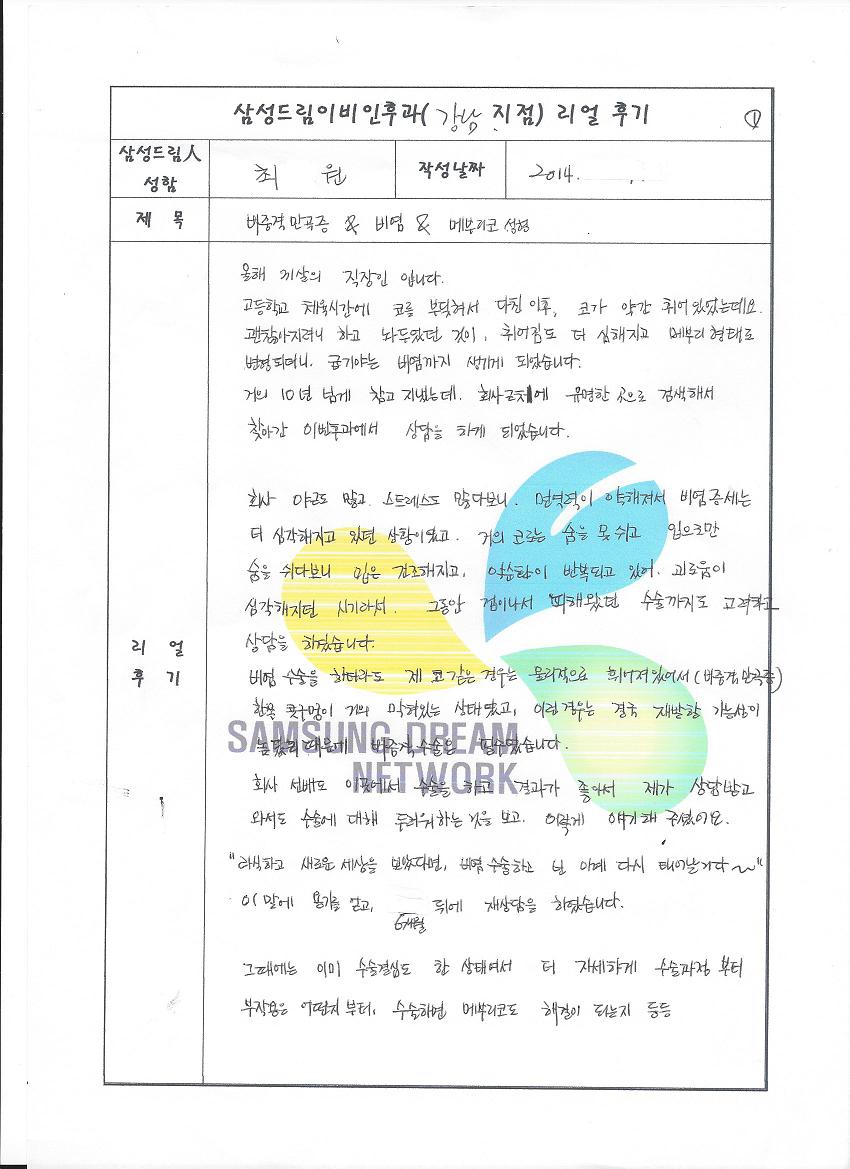 삼성드림이비인후과( 강남 지점) 리얼 후기 ①
삼성드림人 성함
최 원
작성날짜
2014. .
제 목
비중격만곡증 & 비염 & 메부리코 성형
리 얼
후 기
올해 살의 직장인 입니다.
고등학교 체육시간에 코를 부딪혀서 다친 이후, 코가 약간 휘어있었는데요.
괜찮아지려니 하고 놔두었던 것이, 휘어짐도 더 심해지고 메부리형태로
변형되더니, 급기야는 비염까지 생기게 되었습니다.
거의 10년 넘게 참고 지냈는데. 회사근처에 유명한 곳으로 검색해서
찾아간 이빈후과에서 상담을 하게 되었습니다.
회사 야근도 많고. 스트레스도 많다보니. 면역력이 약해져서 비염증세는
더 심각해지고 있던 상황이었고. 거의 코로는 숨을 못쉬고 입으로만
숨을 쉬다보니 입은 건조해지고, 악순환이 반복되고 있어. 괴로움이
심각해지던 시기라서. 그동안 겁이나서 피해왔던 수술까지도 고려하고
상담을 하였습니다.
비염 수술을 하더라도 제 코 같은 경우는 물리적으로 휘어져있어서(비중격만곡증)
한쪽 콧구멍이 거의 막혀있는 상태였고, 이런경우는 결국 재발할 가능성이
높았기때문에 비중격수술은 필수였습니다.
SAMSUNG DREAM
NETWORK
회사 선배도 이곳에서 수술을 하고 결과가 좋아서 제가 상담받고
와서도 수술에 대해 두려워하는 것을 보고. 이렇게 얘기해 주셨어요.
"라식하고 새로운 세상을 보았다면, 비염수술하고 넌 아예 다시 태어날거다~"
이 말에 용기를 얻고, 6개월 뒤에 재상담을 하였습니다.
그때에는 이미 수술결심도 한 상태여서 더 자세하게 수술과정 부터
부작용은 어떤지부터, 수술하면 메부리코도 해결이 되는지 등등